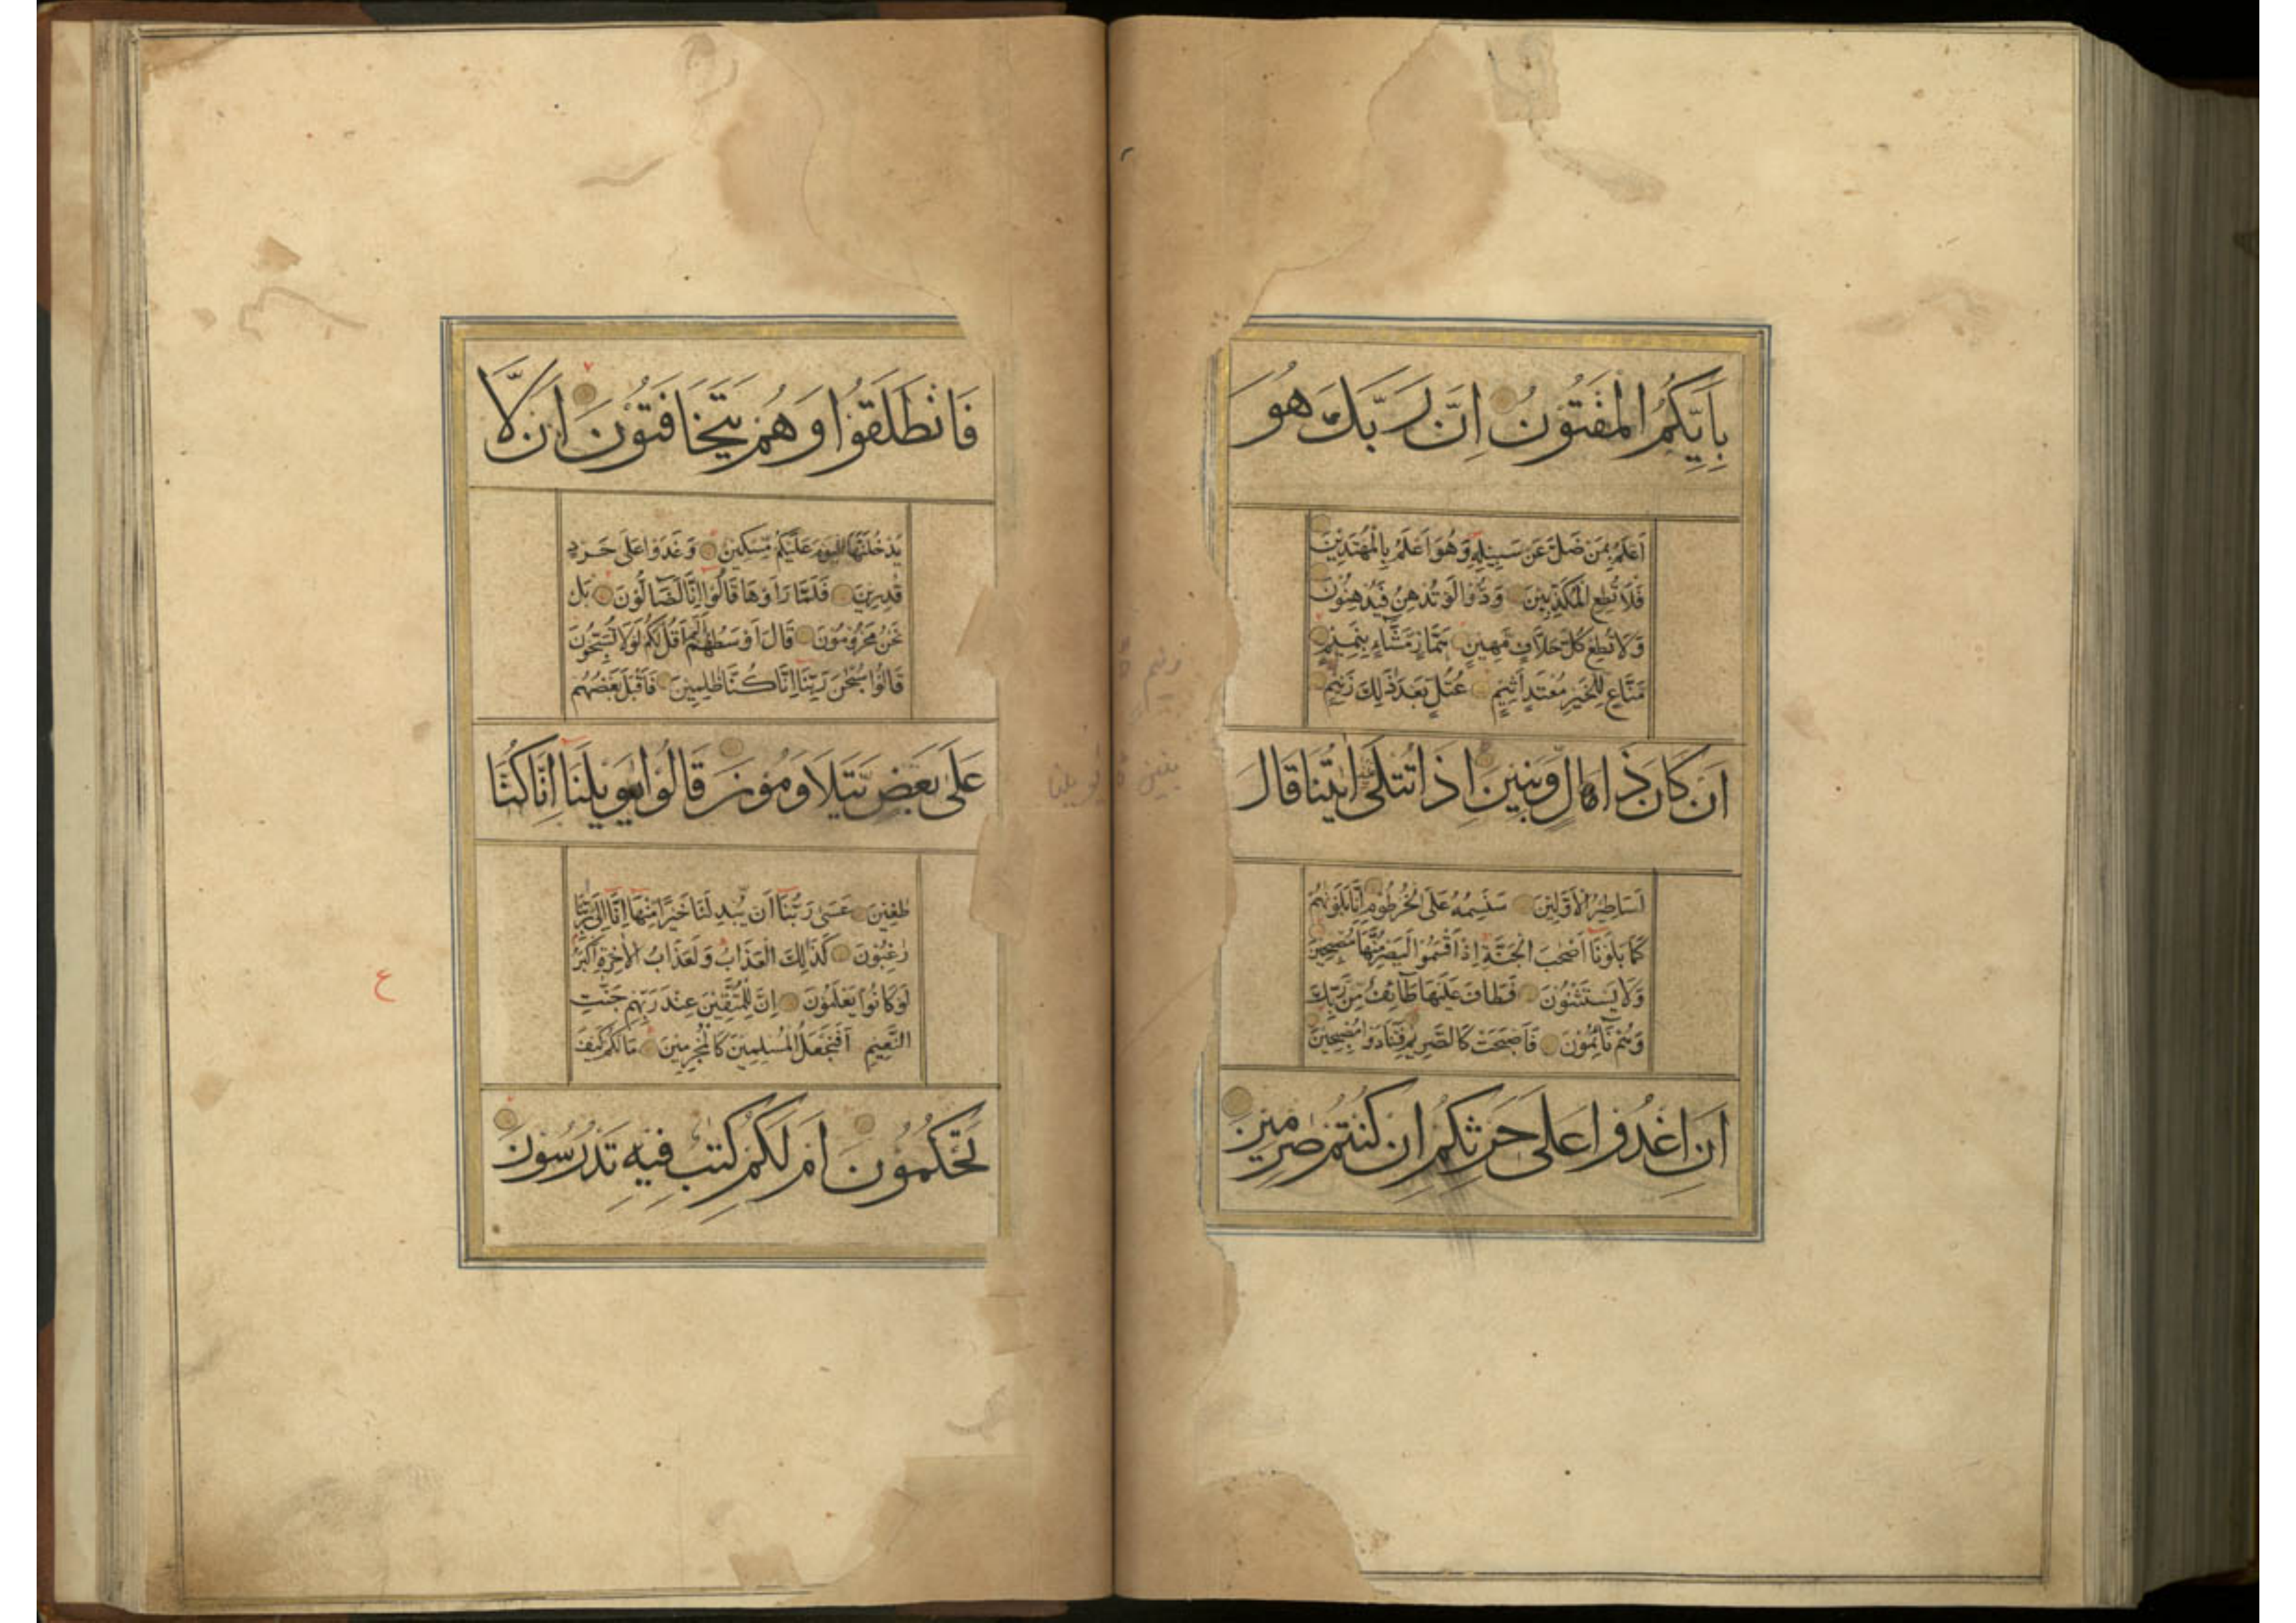 بِاَيِّكُمُ الْمَفْتُوْنُ اِنَّ رَبَّكَ هُوَ
اَعْلَمُ بِمَنْ ضَلَّ عَنْ سَبِيْلِهٖ وَهُوَ اَعْلَمُ بِالْمُهْتَدِيْنَ
فَلَا تُطِعِ الْمُكَذِّبِيْنَ وَدُّوْا لَوْ تُدْهِنُ فَيُدْهِنُوْنَ
وَلَا تُطِعْ كُلَّ حَلَّافٍ مَّهِيْنٍ هَمَّازٍ مَّشَّاءٍ بِنَمِيْمٍ
مَنَّاعٍ لِّلْخَيْرِ مُعْتَدٍ اَثِيْمٍ عُتُلٍّ بَعْدَ ذٰلِكَ زَنِيْمٍ
اَنْ كَانَ ذَا مَالٍ وَّبَنِيْنَ اِذَا تُتْلٰى اٰيٰتُنَا قَالَ
اَسَاطِيْرُ الْاَوَّلِيْنَ سَنَسِمُهٗ عَلَى الْخُرْطُوْمِ اِنَّا بَلَوْنٰهُمْ
كَمَا بَلَوْنَا اَصْحٰبَ الْجَنَّةِ اِذْ اَقْسَمُوْا لَيَصْرِمُنَّهَا مُصْبِحِيْنَ
وَلَا يَسْتَثْنُوْنَ فَطَافَ عَلَيْهَا طَآئِفٌ مِّنْ رَّبِّكَ
وَهُمْ نَآئِمُوْنَ فَاَصْبَحَتْ كَالصَّرِيْمِ فَتَنَادَوْا مُصْبِحِيْنَ
اَنِ اغْدُوْا عَلٰى حَرْثِكُمْ اِنْ كُنْتُمْ صٰرِمِيْنَ
فَانْطَلَقُوْا وَهُمْ يَتَخَافَتُوْنَ اَنْ لَّا
يَدْخُلَنَّهَا الْيَوْمَ عَلَيْكُمْ مِّسْكِيْنٌ وَغَدَوْا عَلٰى حَرْدٍ
قٰدِرِيْنَ فَلَمَّا رَاَوْهَا قَالُوْا اِنَّا لَضَالُّوْنَ بَلْ
نَحْنُ مَحْرُوْمُوْنَ قَالَ اَوْسَطُهُمْ اَلَمْ اَقُلْ لَّكُمْ لَوْلَا تُسَبِّحُوْنَ
قَالُوْا سُبْحٰنَ رَبِّنَا اِنَّا كُنَّا ظٰلِمِيْنَ فَاَقْبَلَ بَعْضُهُمْ
عَلٰى بَعْضٍ يَّتَلَاوَمُوْنَ قَالُوْا يٰوَيْلَنَا اِنَّا كُنَّا
طٰغِيْنَ عَسٰى رَبُّنَا اَنْ يُّبْدِلَنَا خَيْرًا مِّنْهَا اِنَّا اِلٰى رَبِّنَا
رٰغِبُوْنَ كَذٰلِكَ الْعَذَابُ وَلَعَذَابُ الْاٰخِرَةِ اَكْبَرُ
لَوْ كَانُوْا يَعْلَمُوْنَ اِنَّ لِلْمُتَّقِيْنَ عِنْدَ رَبِّهِمْ جَنّٰتِ
النَّعِيْمِ اَفَنَجْعَلُ الْمُسْلِمِيْنَ كَالْمُجْرِمِيْنَ مَا لَكُمْ كَيْفَ
تَحْكُمُوْنَ اَمْ لَكُمْ كِتٰبٌ فِيْهِ تَدْرُسُوْنَ
ع